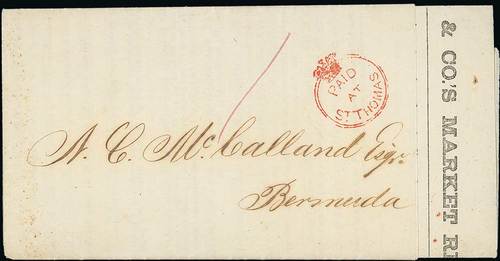 PAID
AT
ST THOMAS
N. C. McCalland Esqr.
Bermuda
& CO.'S MARKET RE